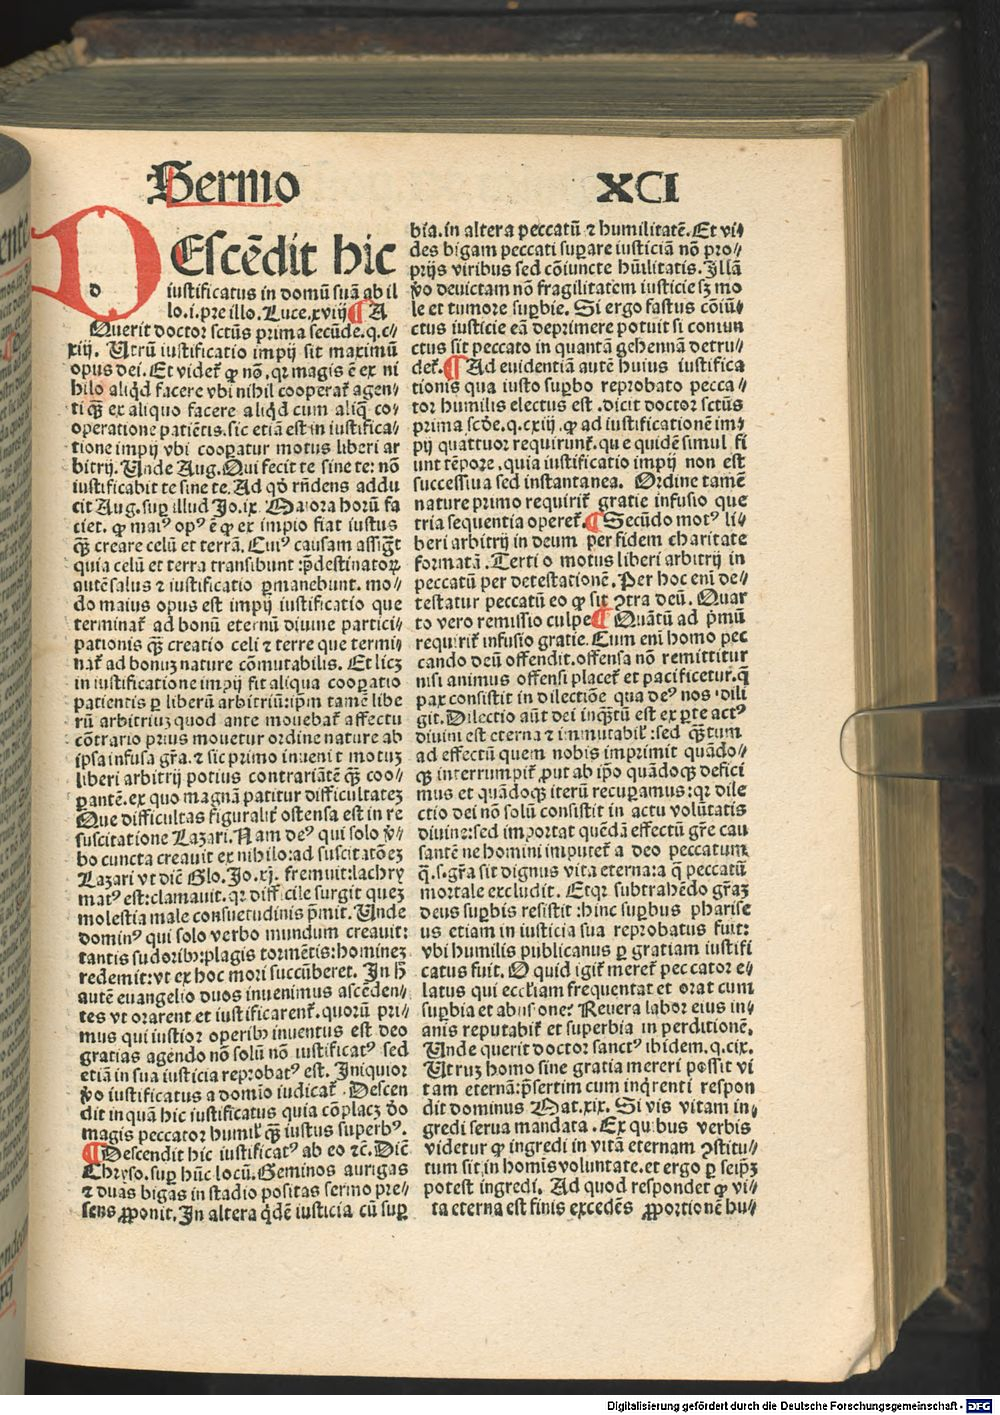 Sermo XCI
DEscēdit hic
iustificatus in domū suā ab il
lo. i. pre illo. Luce. xviij ¶ A
Querit doctor sctūs prima secūde. q. c
xiij. Utrū iustificatio impij sit maximū
opus dei. Et videtꝛ ꝙ nō, qꝛ magis ē ex ni
hilo aliqd facere vbi nihil cooperatꝛ agen⸗
ti q̄ꝫ ex aliquo facere aliqd cum aliq̄ co⸗
operatione patiētis. sic etiā est in iustifica⸗
tione impij vbi cooꝑatur motus liberi ar
bitrij. Unde Aug. Qui fecit te sine te: nō
iustificabit te sine te. Ad qď rn̄dens addu
cit Aug. suꝑ illud Jo. ix Maiora horū fa
ciet. ꝙ maiꝰ opꝰ ē ꝙ ex impio fiat iustus
q̄ꝫ creare celū et terrā. Cuiꝰ causam assigt
quia celū et terra transibunt: p̄destinatoꝝ
autē salus ⁊ iustificatio ꝑmanebunt. mo⸗
do maius opus est impij iustificatio que
terminatꝛ ad bonū eternū diuine partici⸗
pationis q̄ꝫ creatio celi ⁊ terre que termi⸗
natꝛ ad bonuꝫ nature cōmutabilis. Et licꝫ
in iustificatione impij fit aliqua cooꝑatio
patientis ꝑ liberū arbitriū: ip̄m tamē libe
rū arbitriuꝫ quod ante mouebatꝛ affectu
cōtrario prius mouetur ordine nature ab
ipsa infusa gr̄a. ⁊ sic primo inuenit motuꝫ
liberi arbitrij potius contrariātē q̄ꝫ coo⸗
ꝑantē. ex quo magnā patitur difficultateꝫ
Que difficultas figuralitꝛ ostensa est in re
suscitatione Lazari. Nam deꝰ qui solo v̓⸗
bo cuncta creauit ex nihilo: ad suscitatōeꝫ
Lazari vt diē Glo. Jo. xj. fremuit: lachry
matꝰ est: clamauit. qꝛ difficile surgit queꝫ
molestia male consuetudinis p̄mit. Unde
dominꝰ qui solo verbo mundum creauit:
tantis sudoribꝰ: plagis tormētis: homineꝫ
redemit: vt ex hoc mori succūberet. In h̄
autē euangelio duos inuenimus ascēden⸗
tes vt orarent et iustificarentꝛ. quorū pri⸗
mus qui iustior operibꝰ inuentus est deo
gratias agendo nō solū nō iustificatꝰ sed
etiā in sua iusticia reprobatꝰ est. Iniquior
v̓o iustificatus a domīo iudicatꝛ. Descen
dit inquā hic iustificatus quia cōplacꝫ dō
magis peccator humilꝛ q̄ꝫ iustus superbꝰ.
¶ Descendit hic iustificatꝰ ab eo ⁊c̄. Diē
Chryso. suꝑ hūc locū. Geminos aurigas
⁊ duas bigas in stadio positas sermo pre⸗
sens ꝓponit. In altera q̓dē iusticia cū suꝑ
bia. in altera peccatū ⁊ humilitatē. Et vi⸗
des bigam peccati suꝑare iusticiā nō pro⸗
prijs viribus sed cōiuncte hūilitatis. Illā
v̓o deuictam nō fragilitatem iusticie sꝫ mo
le et tumore suꝑbie. Si ergo fastus cōiū⸗
ctus iusticie eā deprimere potuit si coniun
ctus sit peccato in quantā gehennā detru⸗
detꝛ. ¶ Ad euidentiā autē huius iustifica
tionis qua iusto suꝑbo reprobato pecca⸗
tor humilis electus est. dicit doctor sctūs
prima scďe. q. cxiij. ꝙ ad iustificationē im⸗
pij quattuor requiruntꝛ. que quidē simul fi
unt tēpore. quia iustificatio impij non est
successiua sed instantanea. Ordine tamē
nature primo requiritꝛ gratie infusio que
tria sequentia operetꝛ. ¶ Secūdo motꝰ li⸗
beri arbitrij in deum per fidem charitate
formatā. Tertio motus liberi arbitrij in
peccatū per detestationē. Per hoc eni de⸗
testatur peccatū eo ꝙ sit ꝯtra deū. Quar
to vero remissio culpe ¶ Quātū ad p̄mū
requiritꝛ infusio gratie. Cum eni homo pec
cando deū offendit. offensa nō remittitur
nisi animus offensi placetꝛ et pacificetur. q̄
pax consistit in dilectiōe qua deꝰ nos dili
git. Dilectio aūt dei inq̄ꝫtū est ex ꝑte actꝰ
diuini est eterna ⁊ immutabilꝛ: sed q̄ꝫtum
ad effectū quem nobis imprimit quādo⸗
qꝫ interrumpitꝛ ꝓut ab ip̄o quādoqꝫ defici
mus et quādoqꝫ iterū recuꝑamus: qꝛ dile
ctio dei nō solū consistit in actu volūtatis
diuine: sed importat quēdā effectū gr̄e cau
santē ne homini imputetꝛ a deo peccatum
q̄. s. gr̄a sit dignus vita eterna: a q̄ peccatū
mortale excludit. Et qꝛ subtrahēdo gr̄aꝫ
deus suꝑbis resistit: hinc suꝑbus pharise
us etiam in iusticia sua reprobatus fuit:
vbi humilis publicanus ꝑ gratiam iustifi
catus fuit. O quid igitꝛ meretꝛ peccator e⸗
latus qui eccl̄iam frequentat et orat cum
suꝑbia et abusione? Reuera labor eius in⸗
anis reputabitꝛ et superbia in perditionē.
Unde querit doctor sanctꝰ ibidem. q. cix.
Utruꝫ homo sine gratia mereri possit vi
tam eternā: p̄sertim cum inq̓renti respon
dit dominus Mat. xix. Si vis vitam in⸗
gredi serua mandata. Ex quibus verbis
videtur ꝙ ingredi in vitā eternam ꝯstitu⸗
tum sit in homīs voluntate. et ergo ꝑ seip̄ꝫ
potest ingredi. Ad quod respondet ꝙ vi⸗
ta eterna est finis excedēs ꝓportionē hu⸗
Digitalisierung gefördert durch die Deutsche Forschungsgemeinschaft - DFG